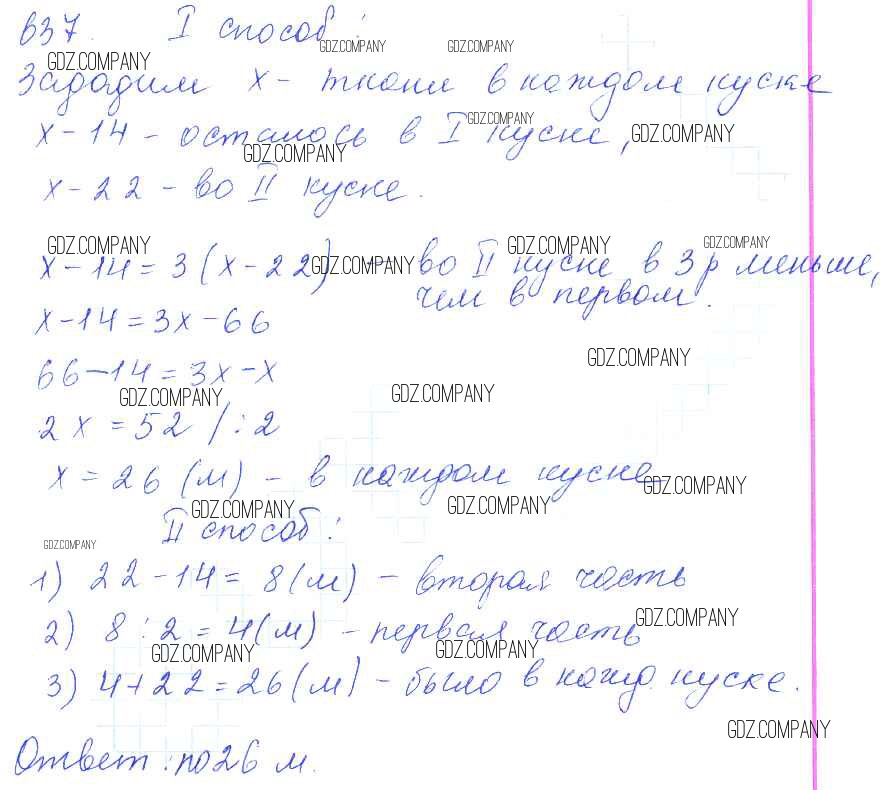 637. I способ:
GDZ.COMPANY GDZ.COMPANY GDZ.COMPANY
Зададим x - ткани в каждом куске
GDZ.COMPANY
x - 14 - осталось в I куске, GDZ.COMPANY
GDZ.COMPANY
x - 22 - во II куске.
GDZ.COMPANY GDZ.COMPANY GDZ.COMPANY
x - 14 = 3(x - 22) GDZ.COMPANY - во II куске в 3 р меньше,
чем в первом.
x - 14 = 3x - 66
GDZ.COMPANY
66 - 14 = 3x - x
GDZ.COMPANY GDZ.COMPANY
2x = 52 /:2
x = 26 (м) - в каждом куске
GDZ.COMPANY
GDZ.COMPANY GDZ.COMPANY
II способ:
GDZ.COMPANY
1) 22 - 14 = 8 (м) - вторая часть
GDZ.COMPANY
2) 8 : 2 = 4 (м) - первая часть
GDZ.COMPANY GDZ.COMPANY
3) 4 + 22 = 26 (м) - было в кажд. куске.
GDZ.COMPANY
Ответ: по 26 м.